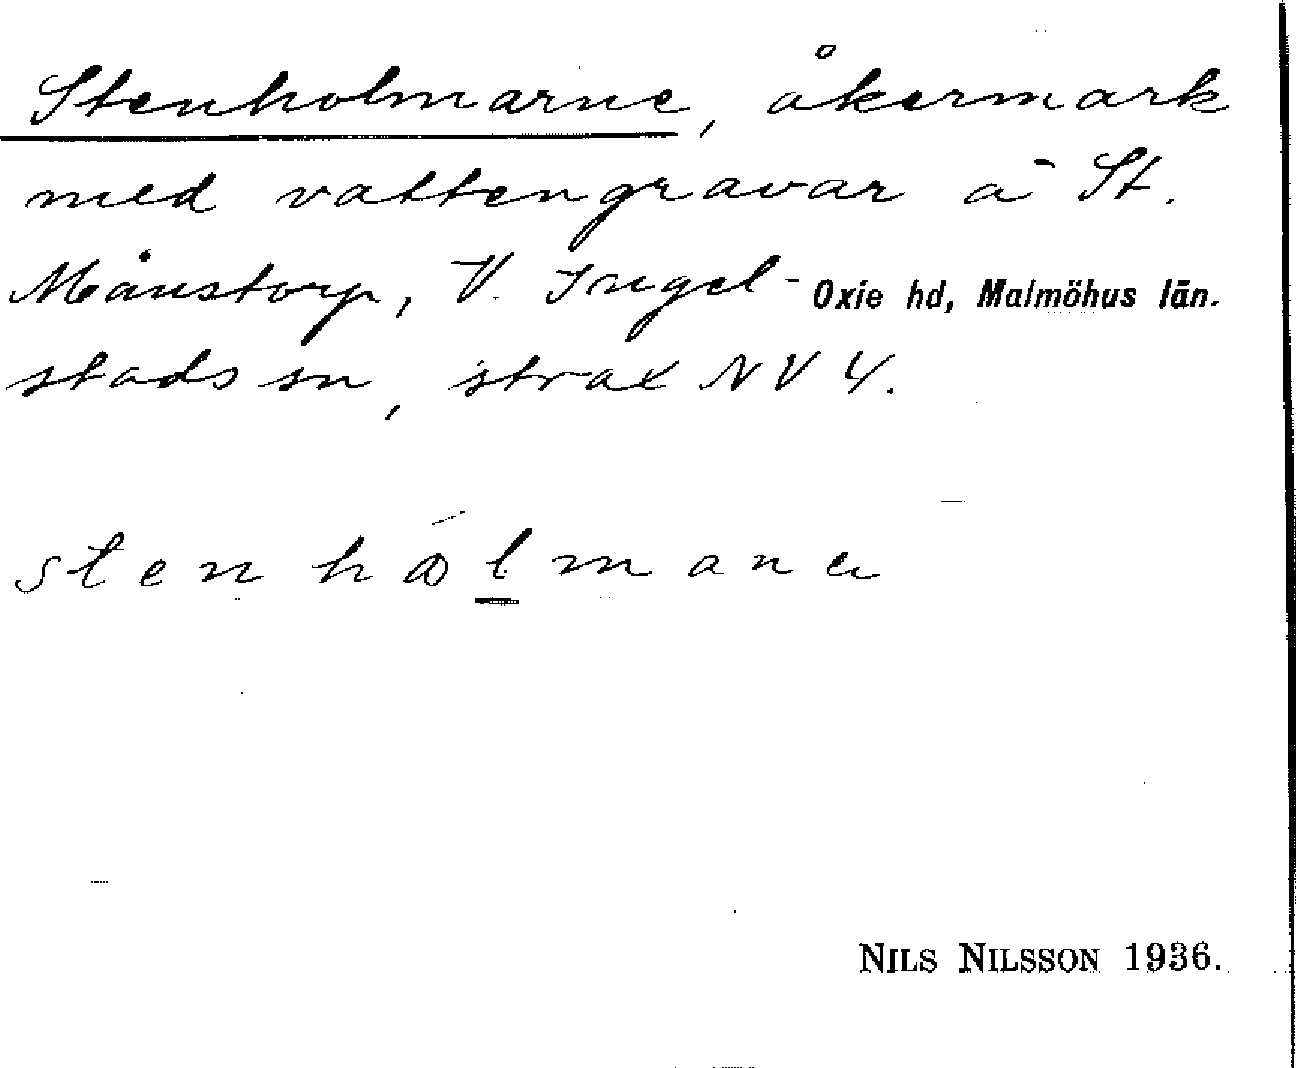 Stenholmarne, åkermark
med vattengravar å St.
Månstorp, V. Ingel- Oxie hd, Malmöhus län.
stads sn, strax NV 4.
NILS NILSSON 1936.